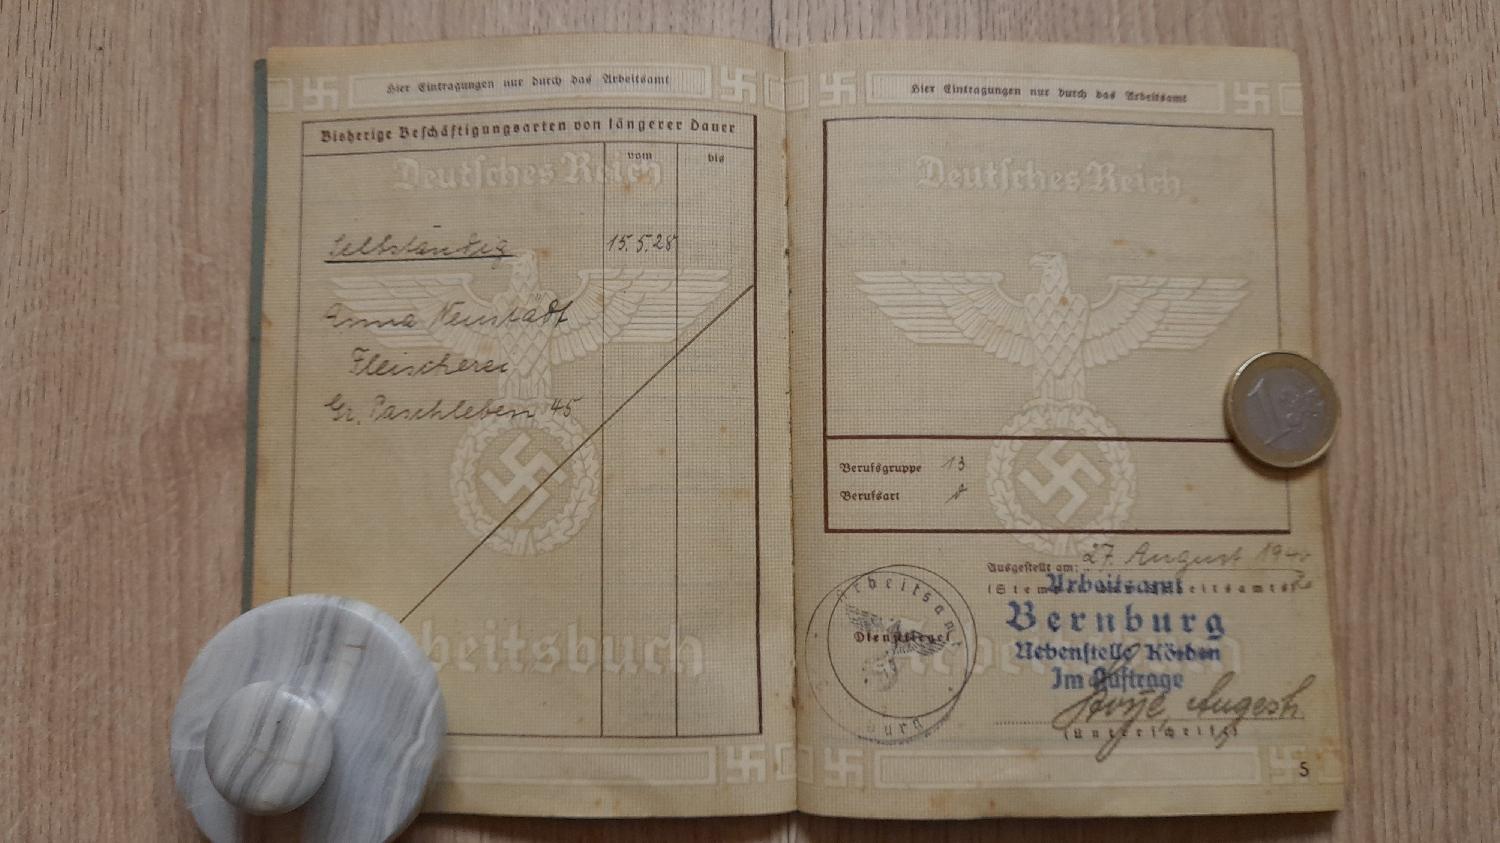 Hier Eintragungen nur durch das Arbeitsamt
Bisherige Beschäftigungsarten von längerer Dauer
vom bis
Deutsches Reich
Selbständig 15.5.28
Anna Neustädt
Fleischerei
Gr. Paschleben 45
beitsbuch
Hier Eintragungen nur durch das Arbeitsamt
Deutsches Reich
1
Berufsgruppe 13
Berufsart
Ausgestellt am: 27. August 194
Arbeitsamt
Arbeitsamt
Bernburg
Dienstsiegel
Nebenstelle Köthen
Im Auftrage
Angest.
(Unterschrift)
5